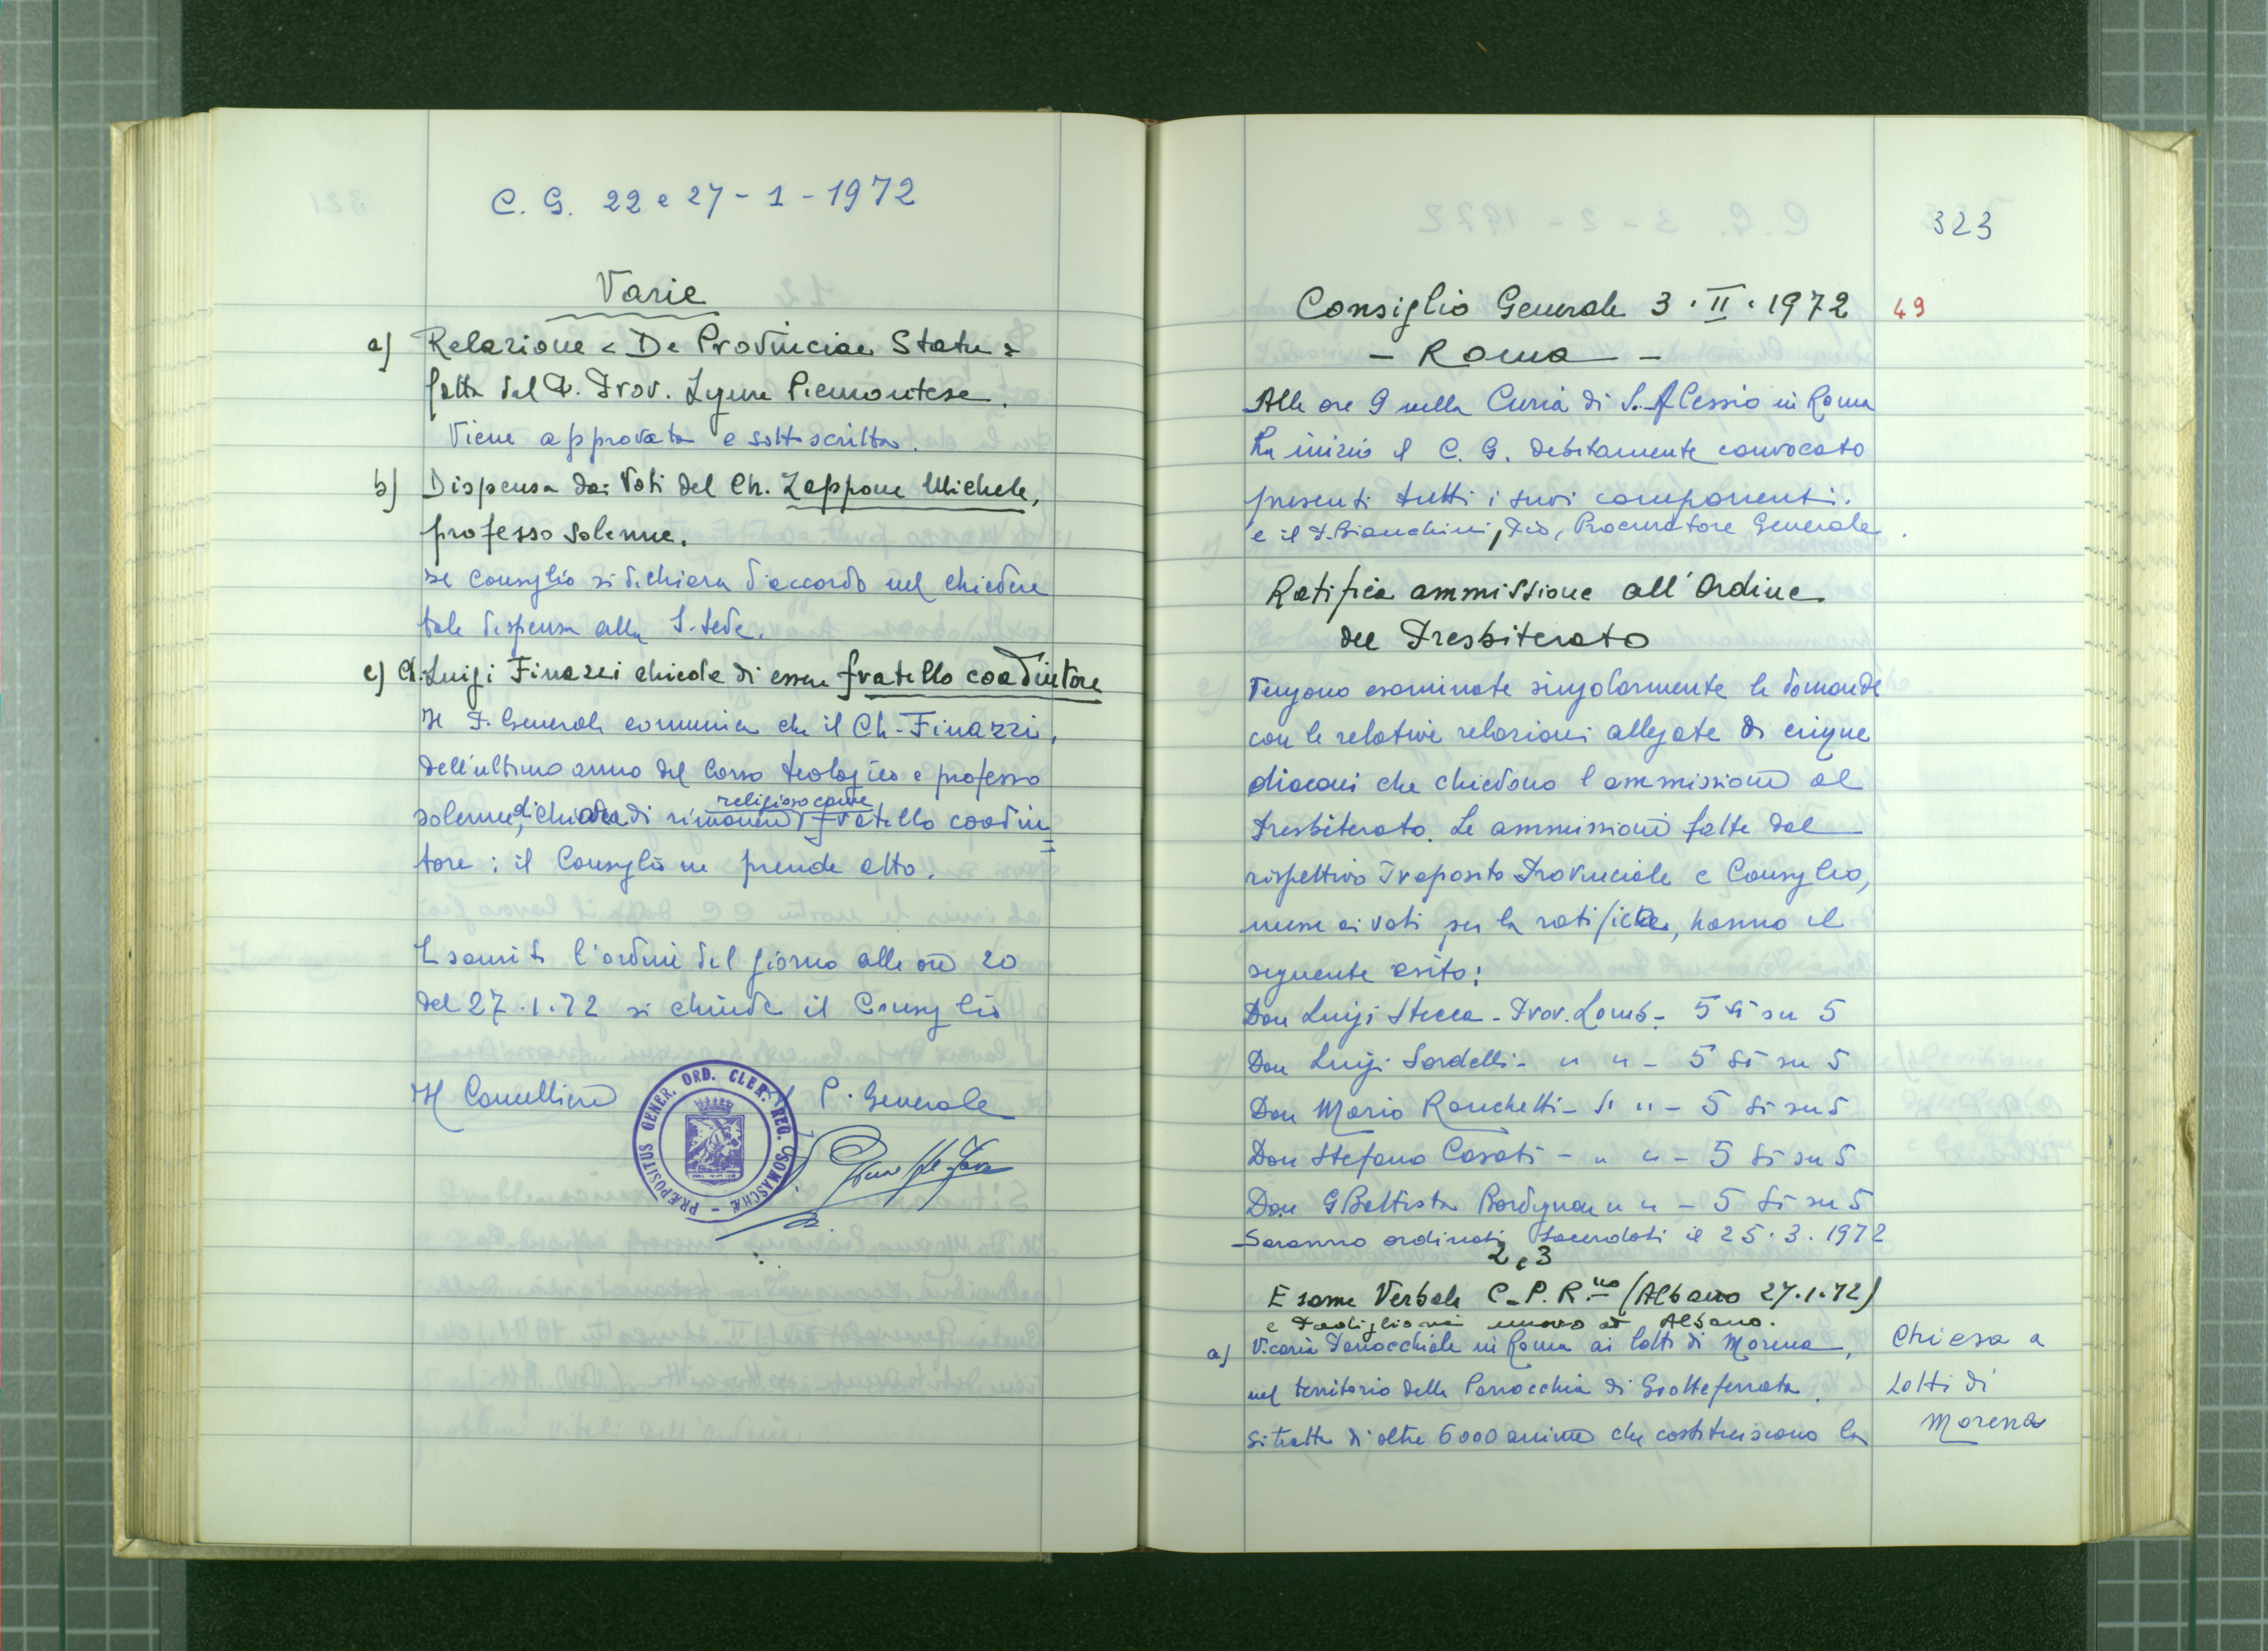 C. G. 22 e 27 - 1 - 1972
Varie
a) Relazione « De Provinciae Statu »
fatta dal P. Prov. Ligure Piemontese.
Viene approvata e sottoscritta.
b) Dispensa dai Voti del Ch. Zappone Michele,
professo solenne.
Il Consiglio si dichiara d'accordo nel chiedere
tale dispensa alla S. Sede.
c) Ch. Luigi Finazzi chiede di essere fratello coadiutore
Il P. Generale comunica che il Ch. Finazzi,
dell'ultimo anno del Corso teologico e professo
religioso come
solenne, chiede di rimanere fratello coadiu=
tore : il Consiglio ne prende atto.
Esauriti l'ordine del giorno alle ore 20
del 27.1.72 si chiude il Consiglio
Il Cancelliere P. Generale
PRÆPOSITUS GENER. ORD. CLER. REG. SOMASCHÆ
323
Consiglio Generale 3 . II . 1972 49
- Roma -
Alle ore 9 nella Curia di S. Alessio in Roma
ha inizio il C. G. debitamente convocato
presenti tutti i suoi componenti.
e il P. Bianchini, Pio, Procuratore Generale.
Ratifica ammissione all'Ordine
del Presbiterato
Vengono esaminate singolarmente le domande
con le relative relazioni allegate di cinque
diaconi che chiedono l'ammissione al
Presbiterato. Le ammissioni fatte dal
rispettivo Preposito Provinciale e Consiglio,
messe ai voti per la ratifica, hanno il
seguente esito:
Don Luigi Stecca - Prov. Lomb - 5 sì su 5
Don Luigi Sordelli - " " - 5 sì su 5
Don Mario Ronchetti - " " - 5 sì su 5
Don Stefano Casati - " " - 5 sì su 5
Don GBattista Bordignon " " - 5 sì su 5
Saranno ordinati Sacerdoti il 25.3.1972
2 e 3
Esame Verbale C. P. R.no (Albano 27.1.72)
e Padiglione nuovo ad Albano.
a) Vicaria Parrocchiale in Roma ai lotti di Morena,
nel territorio della Parrocchia di Grottaferrata.
Si tratta di oltre 6000 anime che costituiscono la
Chiesa a
Lotti di
Morena